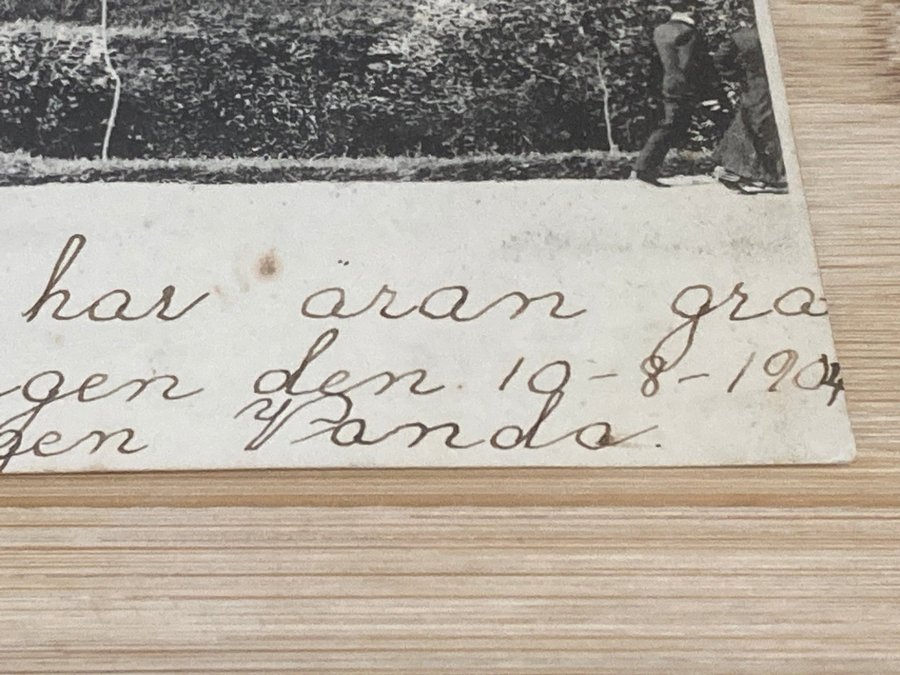 har äran gra
gen den 10-8-1904
gen Wanda.